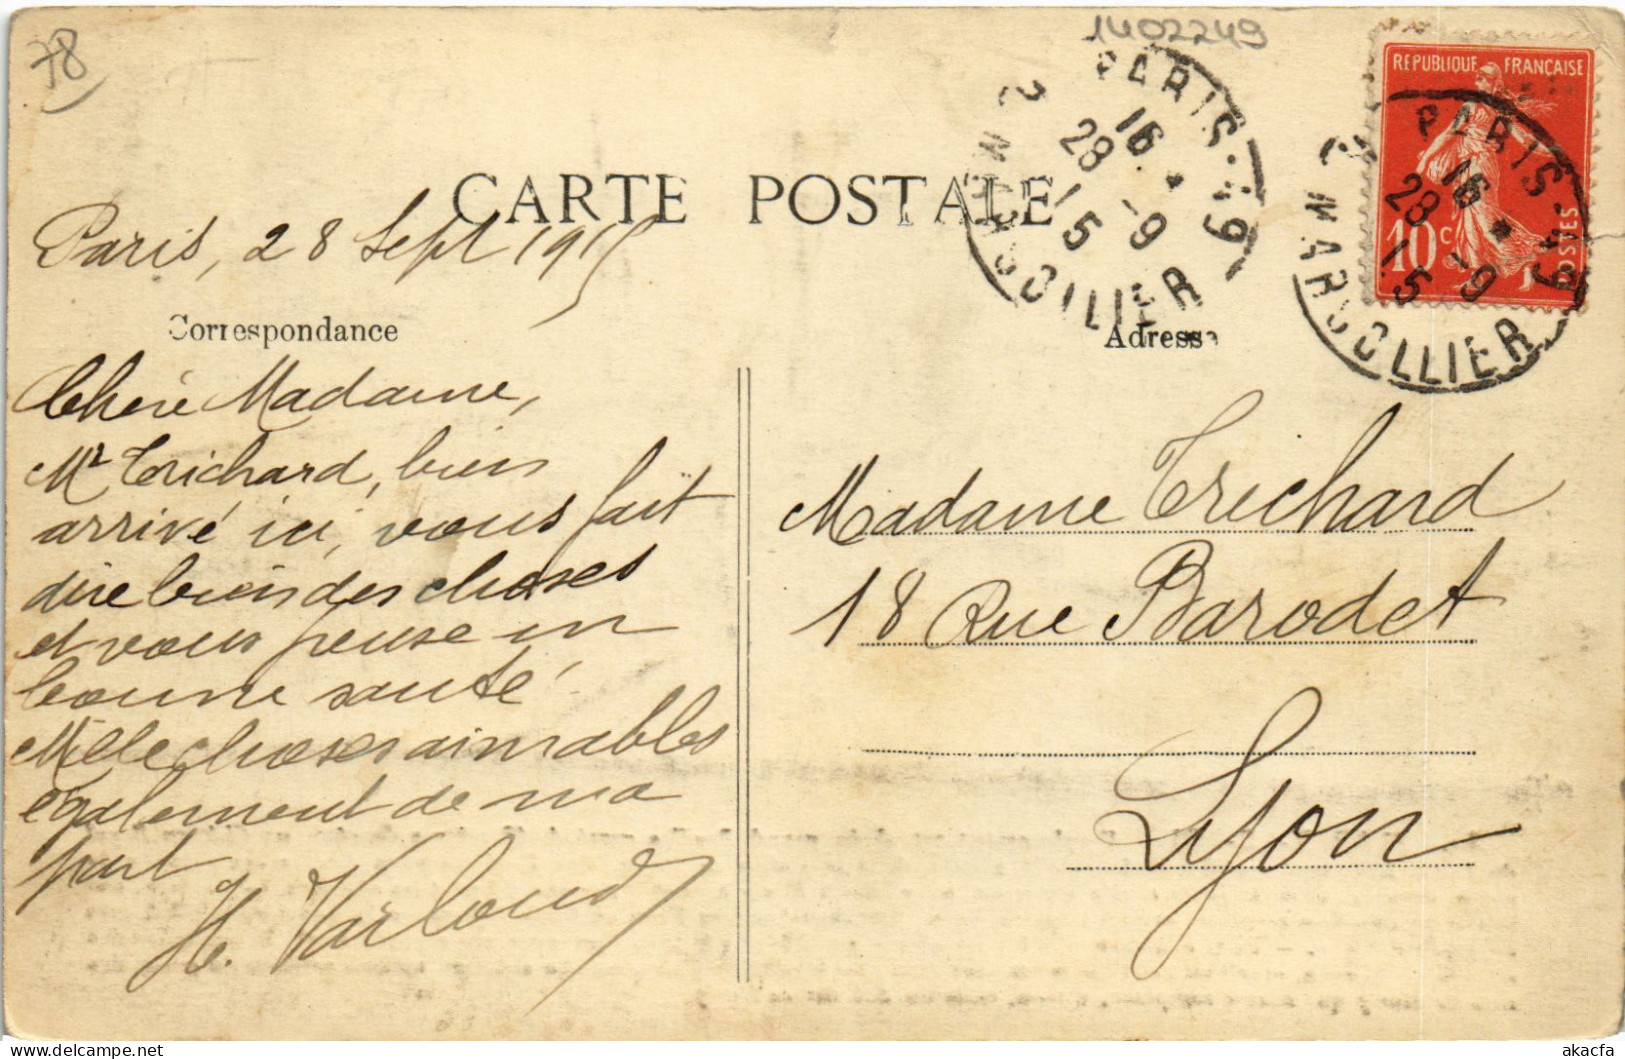 78
1402249
REPUBLIQUE FRANÇAISE
10c
POSTES
PARIS - 49
16
28 -9
15
2 MARSOLLIER
PARIS - 49
16
28 -9
15
2 MARSOLLIER
CARTE POSTALE
Paris, 28 Sept 1915
Correspondance
Adresse
Chère Madame,
Mr Trichard, bien
arrivé ici, vous fait
dire bien des choses
et vous pense en
bonne santé
Mille choses aimables
également de ma
part
H.
Madame Trichard
18 Rue Barodet
Lyon
akacfa